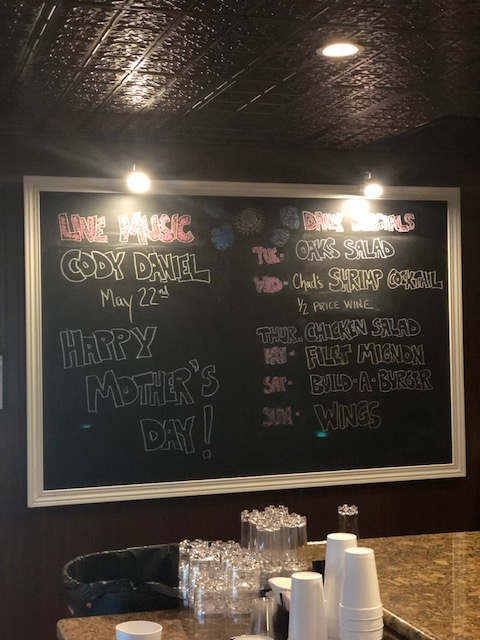 LIVE MUSIC
CODY DANIEL
May 22nd
HAPPY
MOTHER'S
DAY!
DAILY SPECIALS
TUE- OAKS SALAD
WED- Chad's SHRIMP COCKTAIL
1/2 PRICE WINE
THUR. CHICKEN SALAD
FRI- FILET MIGNON
SAT- BUILD-A-BURGER
SUN- WINGS